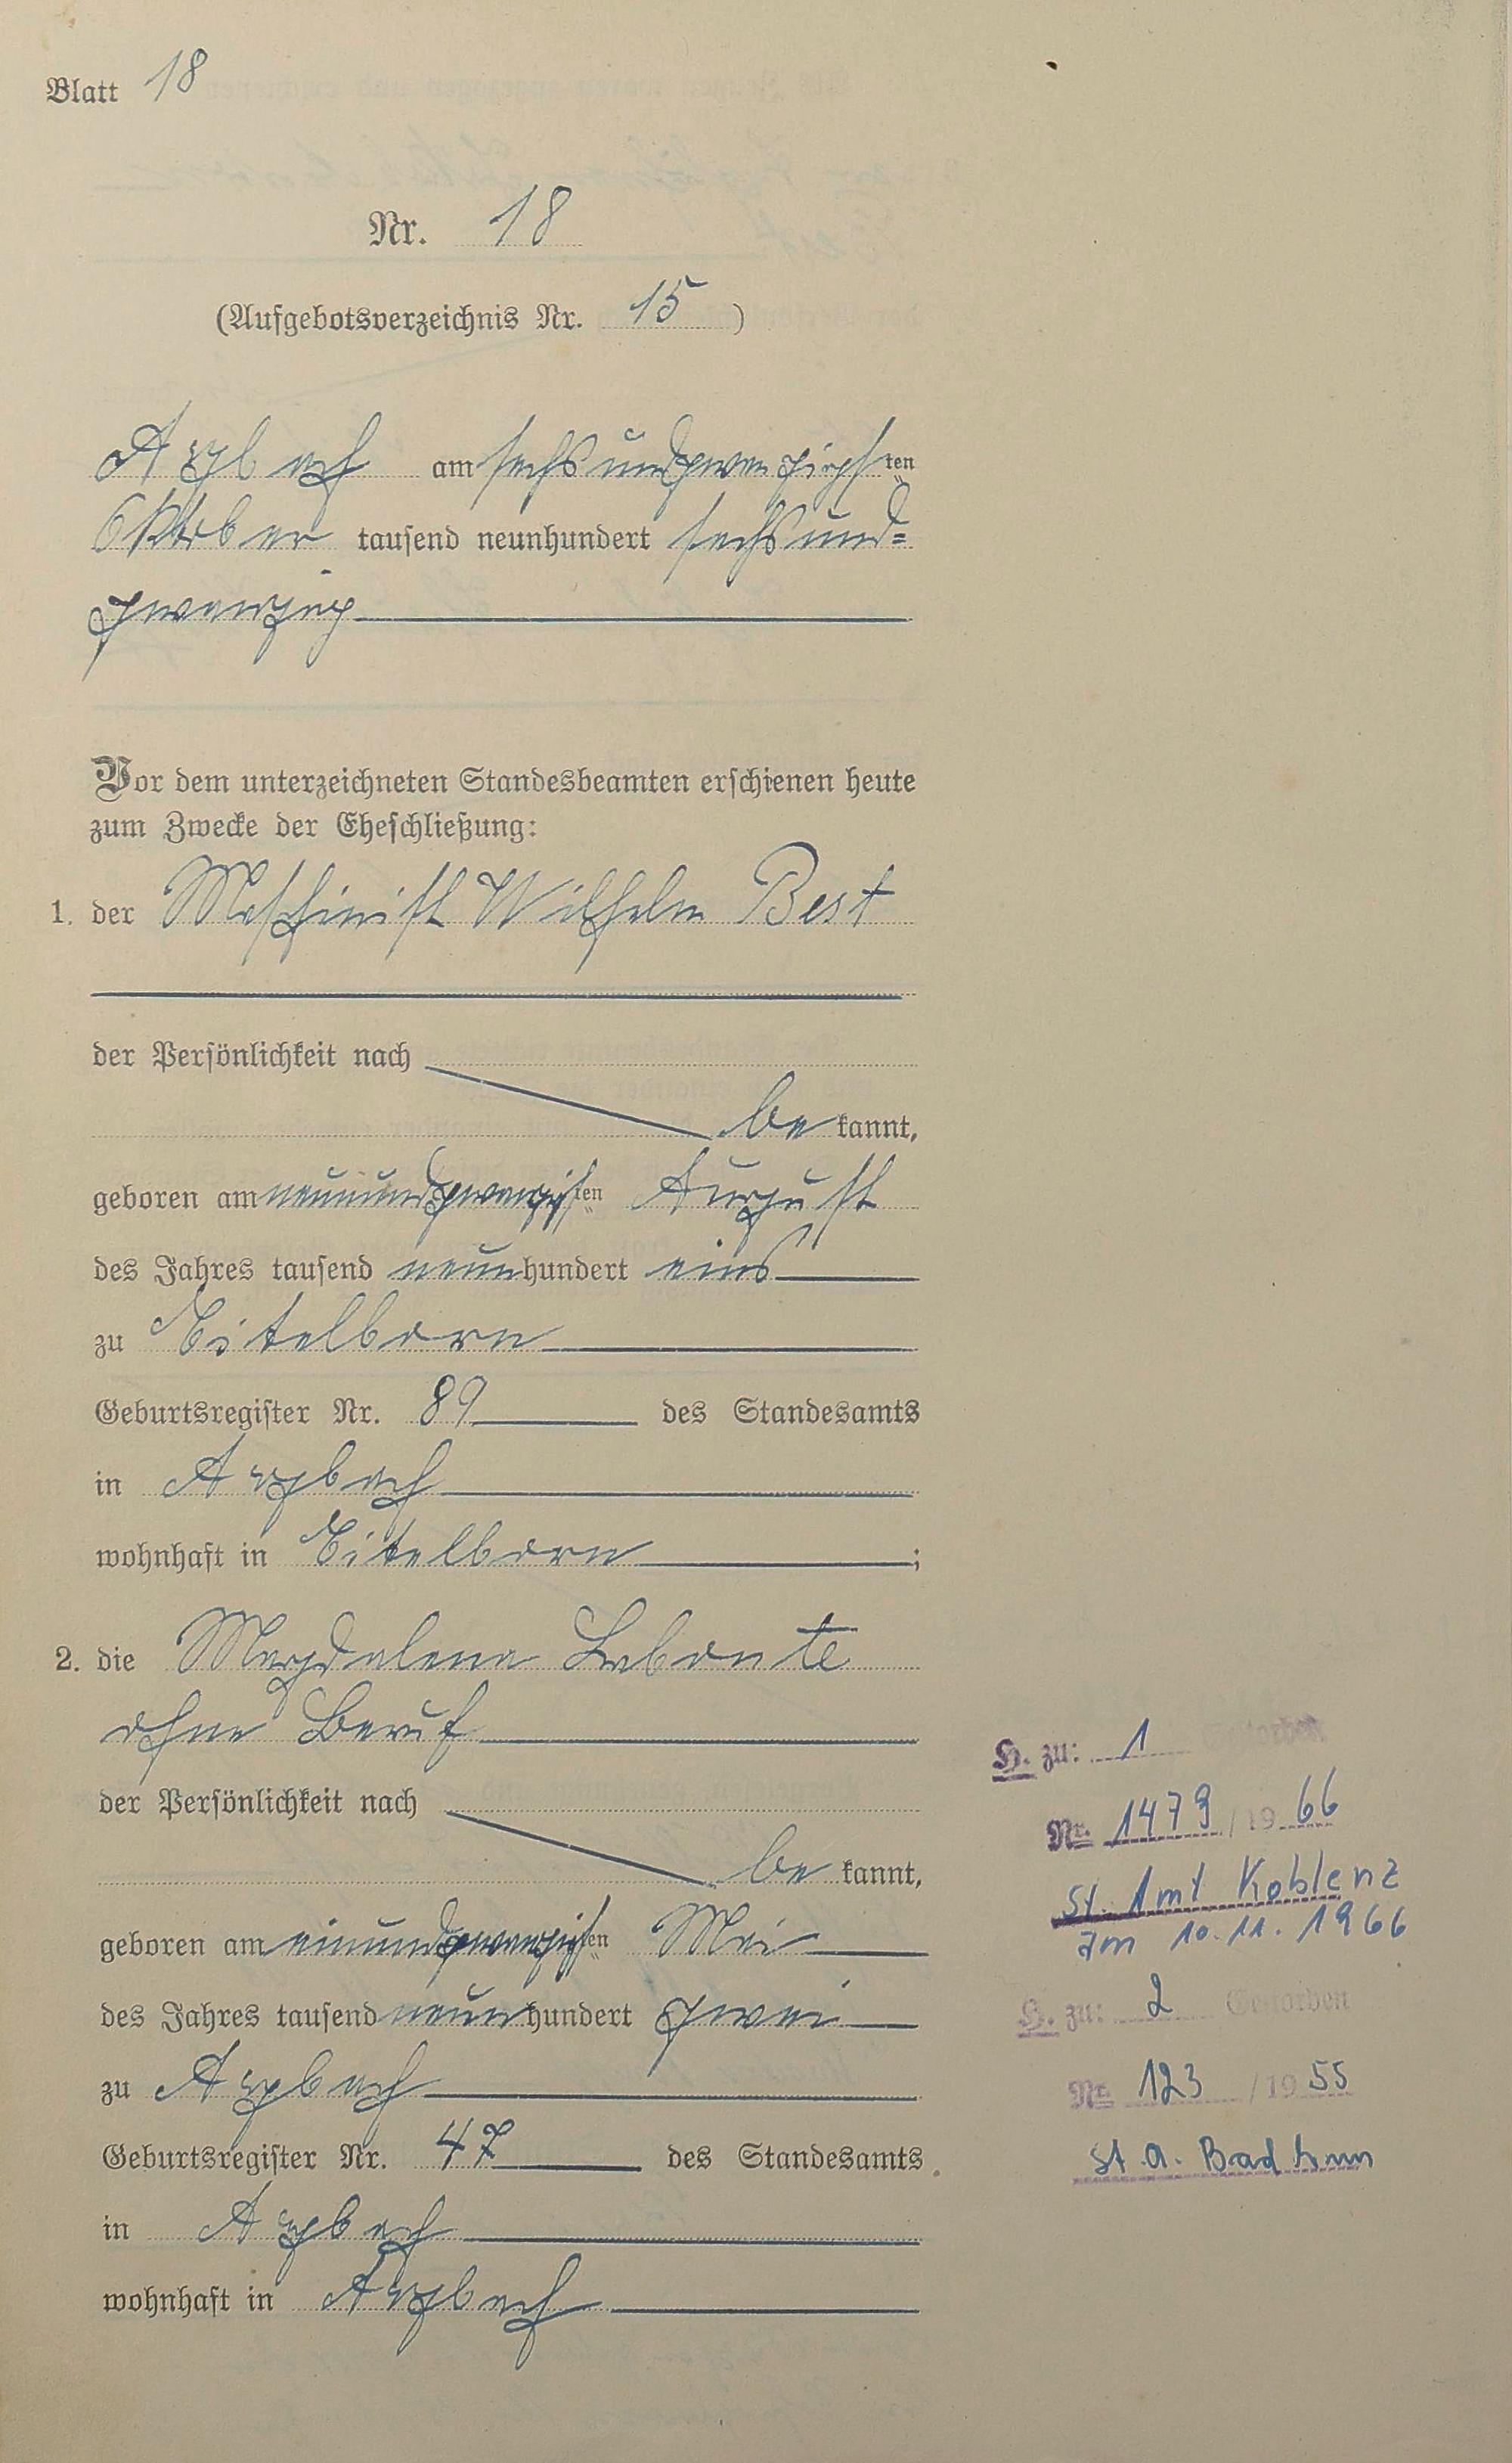 Blatt 18
Nr. 18
(Aufgebotsverzeichnis Nr. 15)
Arzbach am sechsundzwanzigsten
Oktober tausend neunhundert sechsund=
zwanzig
Vor dem unterzeichneten Standesbeamten erschienen heute
zum Zwecke der Eheschließung:
1. der Maschinist Wilhelm Best
der Persönlichkeit nach
be kannt,
geboren am neunundzwanzigsten August
des Jahres tausend neunhundert eins
zu Eitelborn
Geburtsregister Nr. 89 des Standesamts
in Arzbach
wohnhaft in Eitelborn;
2. die Magdalena Labonte
ohne Beruf
der Persönlichkeit nach
be kannt,
geboren am einundzwanzigsten Mai
des Jahres tausend neunhundert zwei
zu Arzbach
Geburtsregister Nr. 47 des Standesamts
in Arzbach
wohnhaft in Arzbach
H. zu: 1 Gestorben
Nr. 1479/1966
St. Amt Koblenz
am 10.11.1966
H. zu: 2 Gestorben
Nr. 123/1955
St. A. Bad Ems